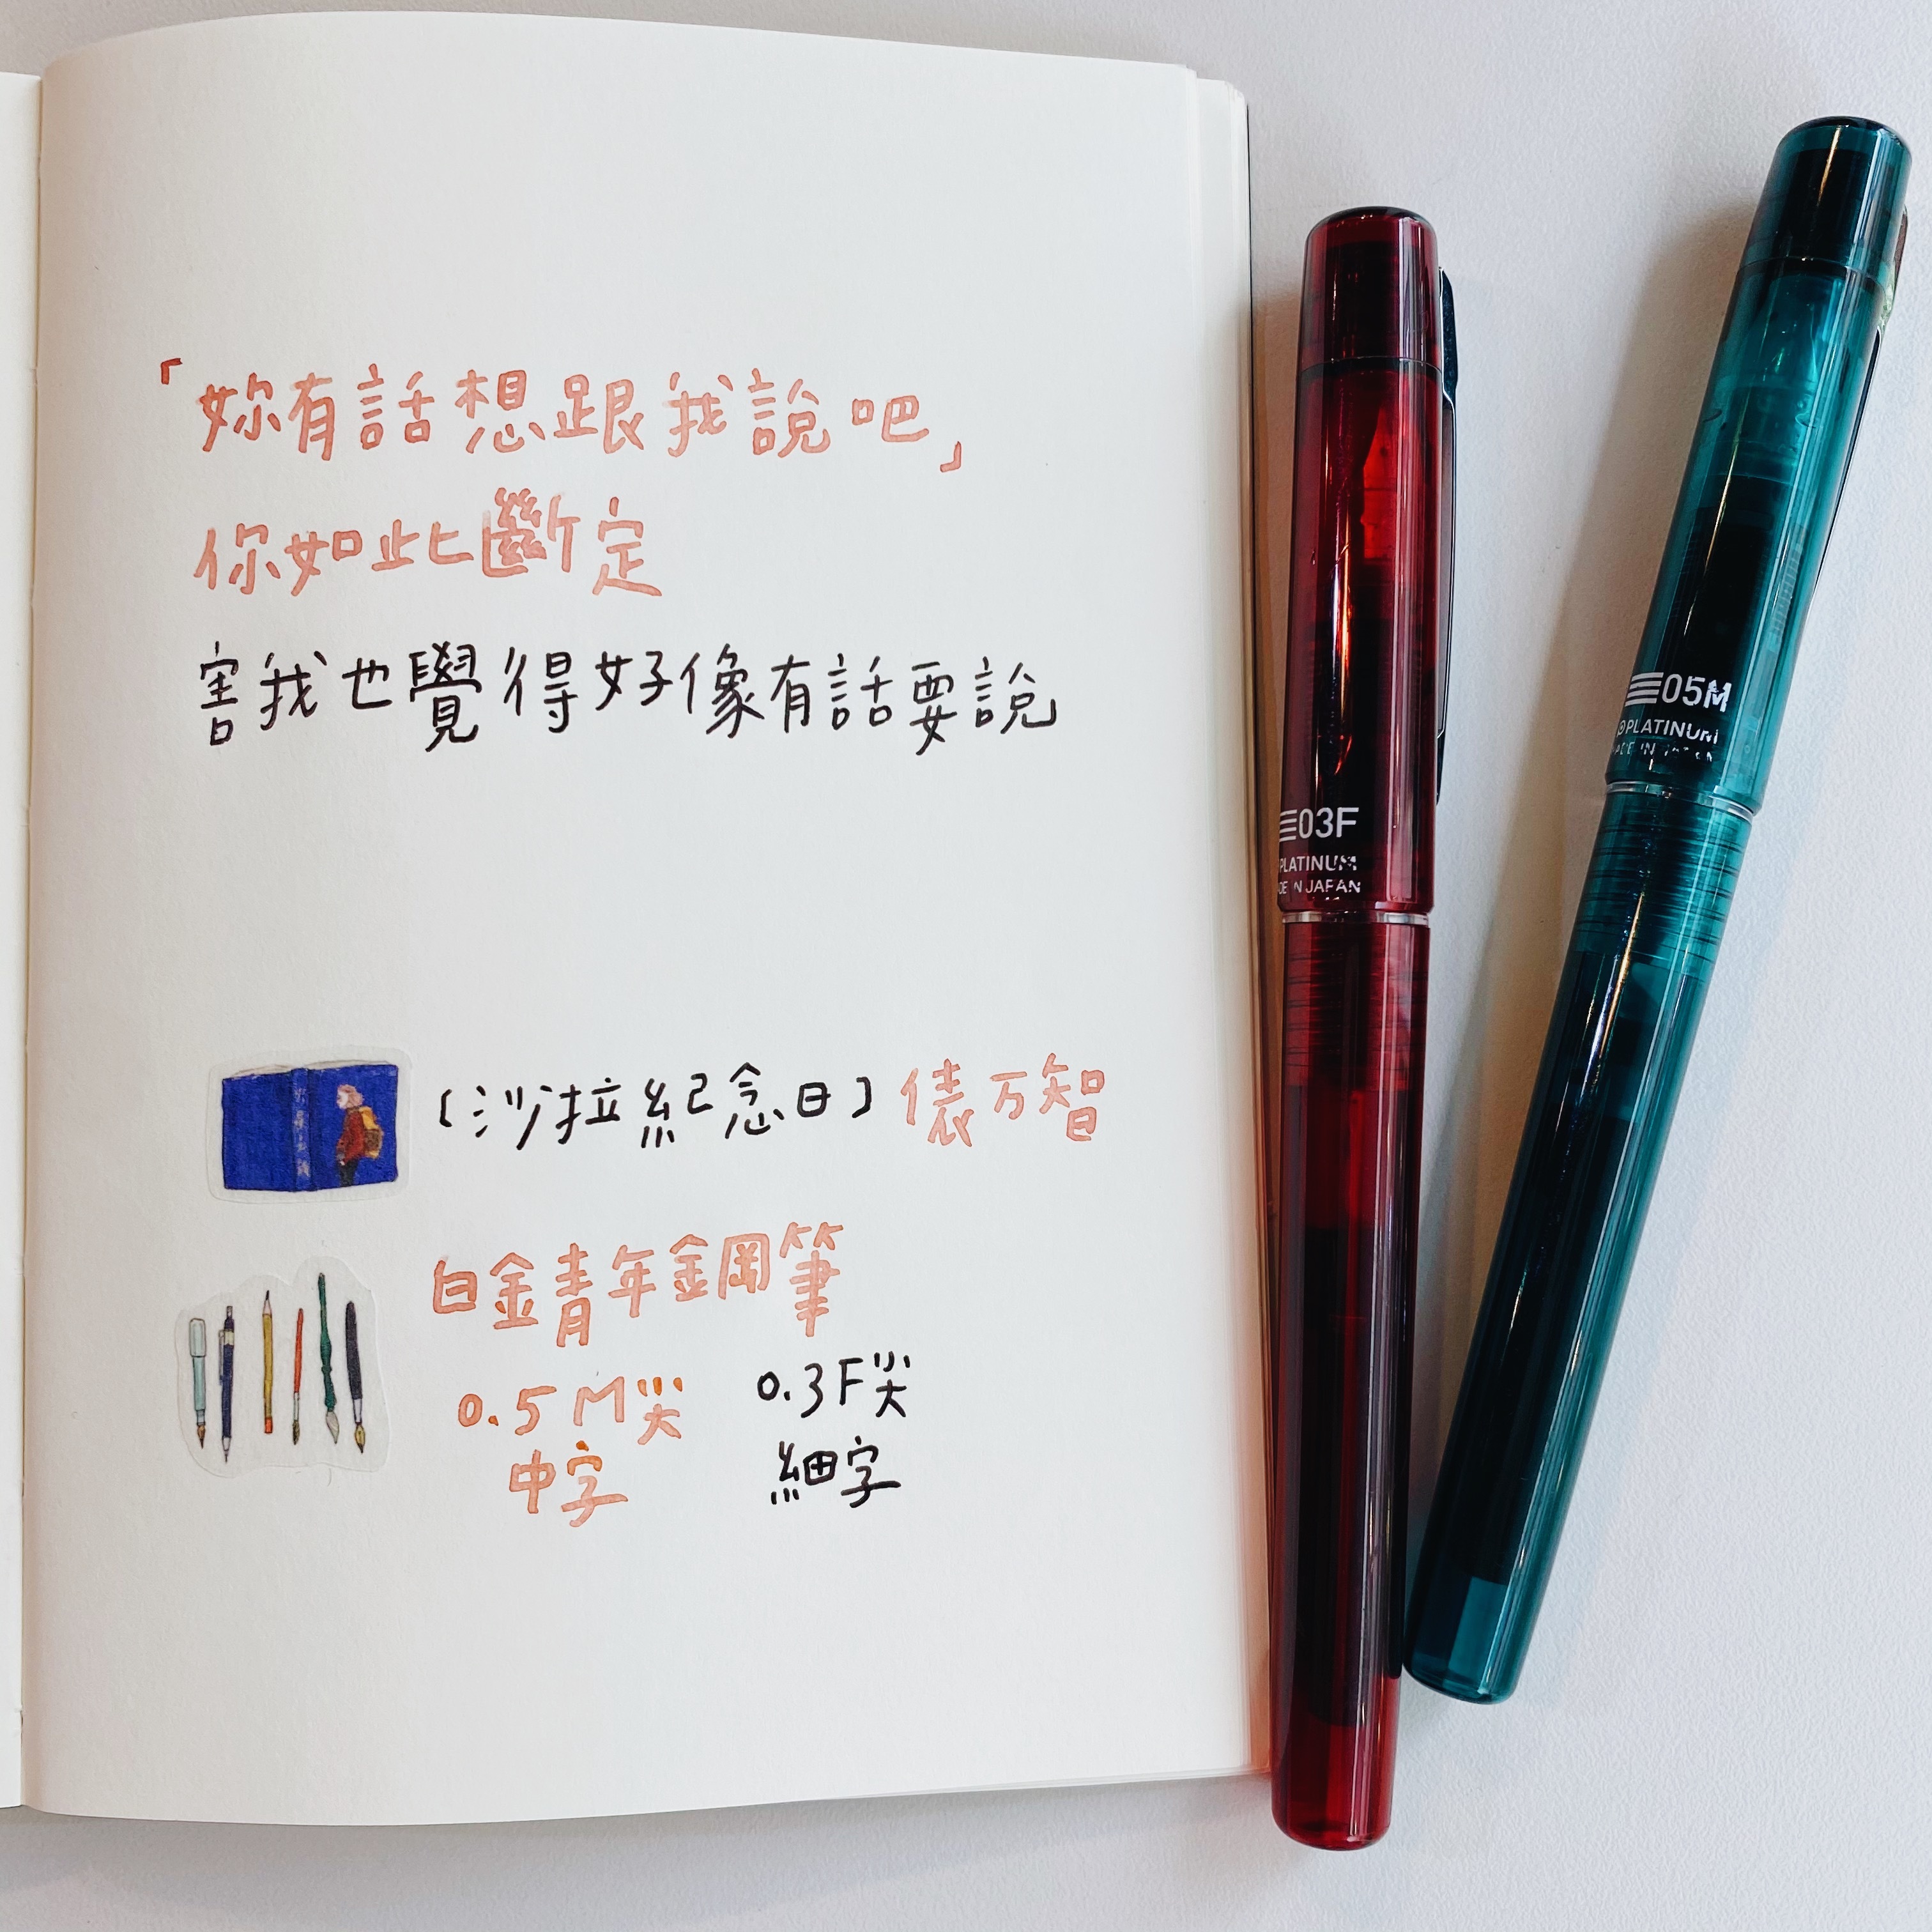 「妳有話想跟我說吧」
你如此斷定
害我也覺得好像有話要說
〔沙拉紀念日〕俵万智
白金青年鋼筆
0.5M尖 0.3F尖
中字 細字
03F
PLATINUM
IN JAPAN
05M
PLATINUM
IN JAPAN